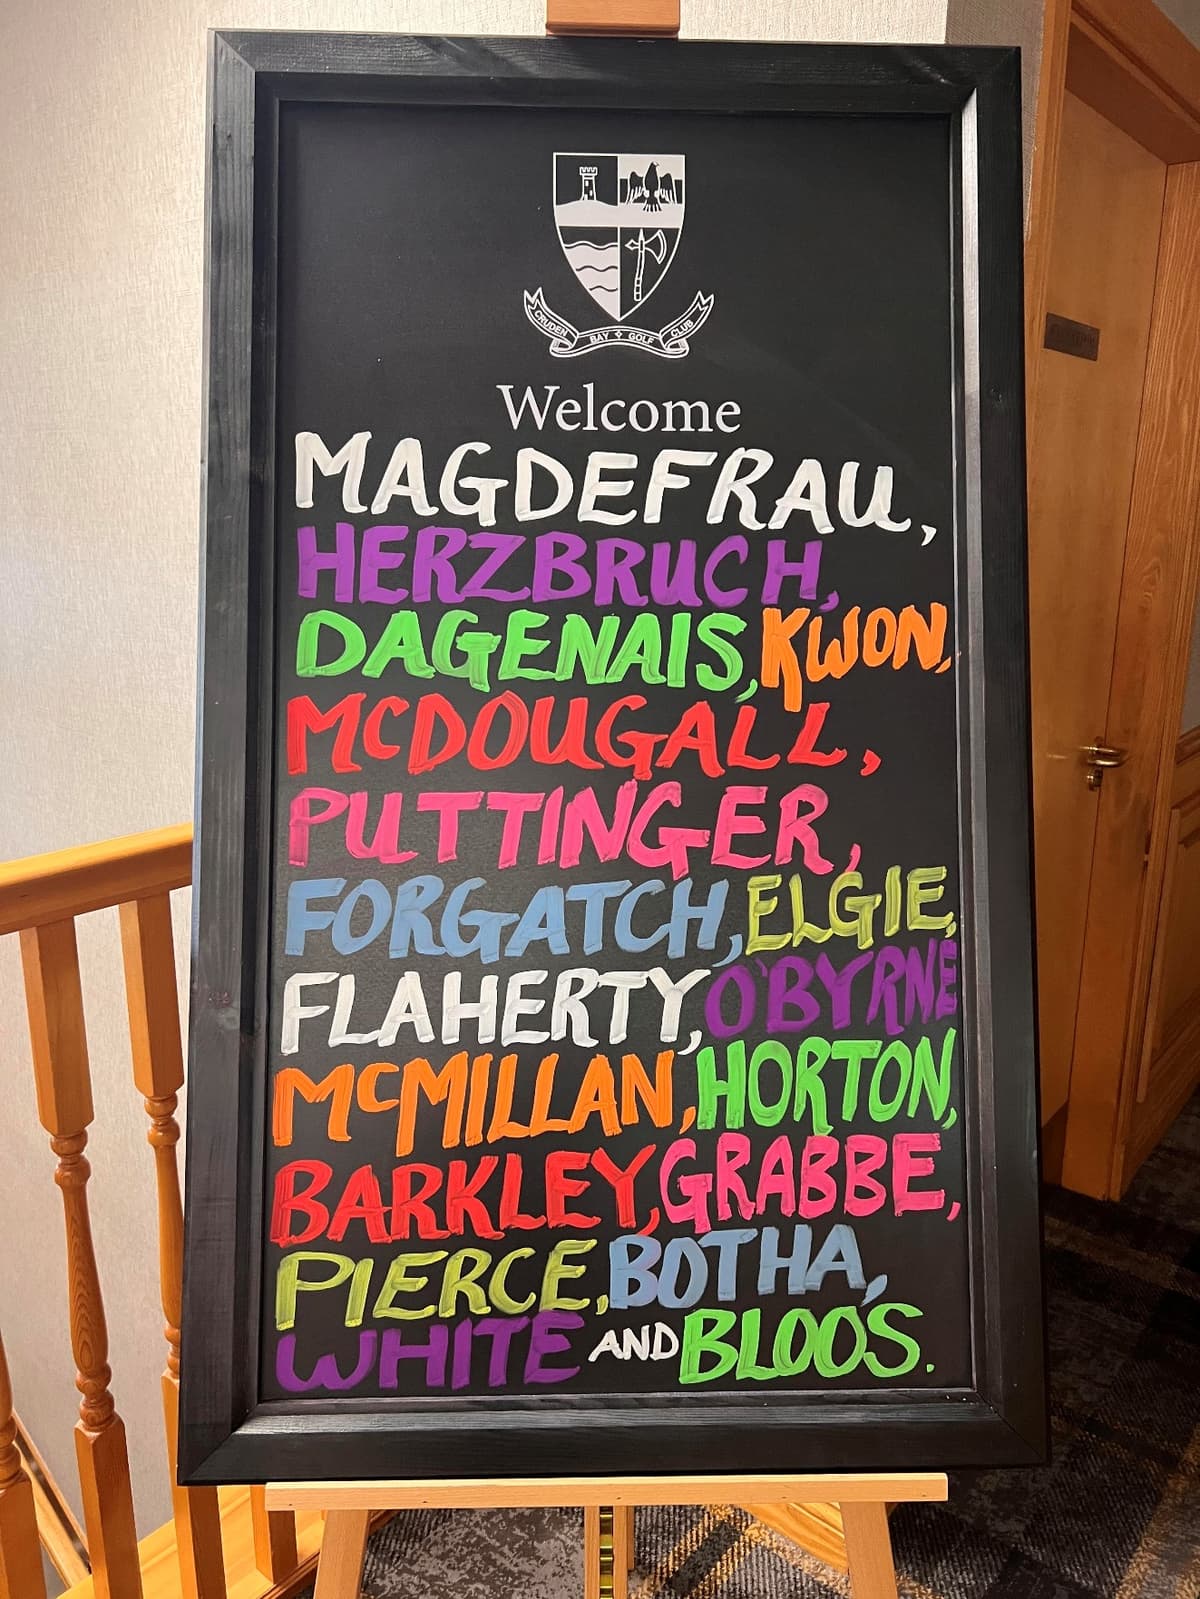 CRUDEN BAY GOLF CLUB
Welcome
MAGDEFRAU,
HERZBRUCH,
DAGENAIS, KWON,
MCDOUGALL,
PUTTINGER,
FORGATCH, ELGIE,
FLAHERTY, O'BYRNE
MCMILLAN, HORTON,
BARKLEY, GRABBE,
PIERCE, BOTHA,
WHITE AND BLOOS.